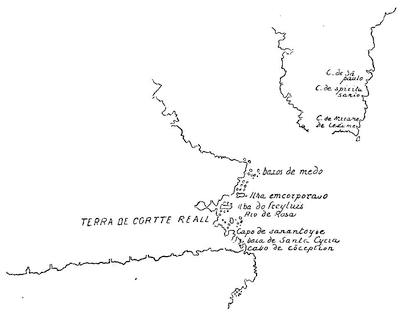 C. de Sã
paulo
C. de spiritu
santo
C. de
baxos de medo
Ilha emcorporaso
Ilha do freyluis
Rio de Rosa
TERRA DE CORTTE REALL
Capo de sanantoyoe
baia de Santa Cyria
cabo de côception